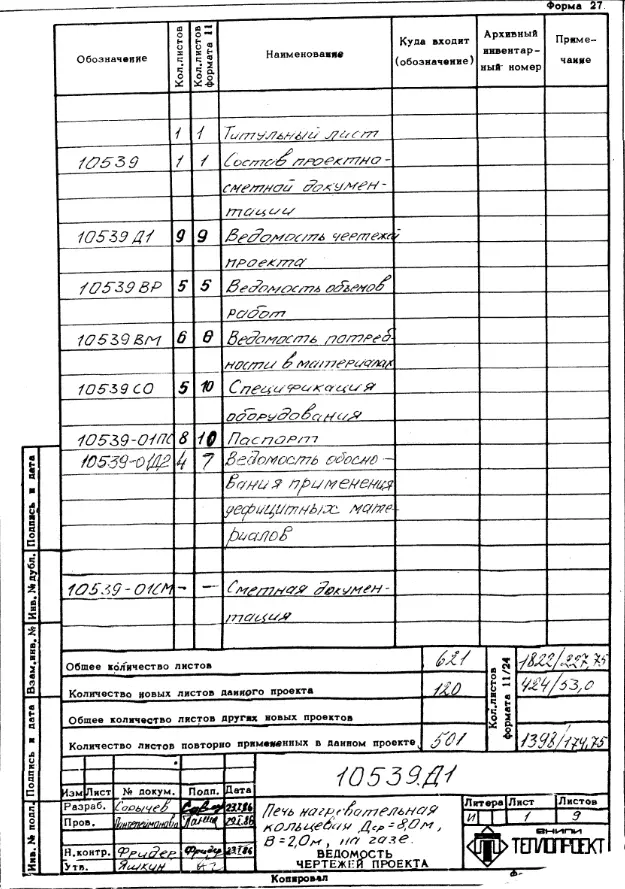 Форма 27.
Обозначение Кол.листов Кол.листов формата 11 Наименование Куда входит (обозначение) Архивный инвентар- ный номер Приме- чание
1 1 Титульный лист
10539 1 1 Состав проектно-
сметной докумен-
тации
10539 Д1 9 9 Ведомость чертежей
проекта
10539 ВР 5 5 Ведомость объемов
работ
10539 ВМ 6 8 Ведомость потреб-
ности в материалах
10539 СО 5 10 Спецификация
оборудования
10539-01ПС 8 10 Паспорт
10539-01Д2 4 7 Ведомость обосно-
вания применения
дефицитных мате-
риалов
10539-01СМ - - Сметная докумен-
тация
Общее количество листов 621 Кол.листов формата 11/24 1822/227,75
Количество новых листов данного проекта 120 424/53,0
Общее количество листов других новых проектов
Количество листов повторно примененных в данном проекте 501 1398/174,75
10539.Д1
Изм Лист № докум. Подп. Дата
Разраб. 23.1.86
Пров.
Н.контр. Фридер Фридер 23.1.86
Утв. Яшкин
Печь нагревательная
кольцевая Дср=8,0м,
В=2,0м, на газе.
ВЕДОМОСТЬ
ЧЕРТЕЖЕЙ ПРОЕКТА
Литера Лист Листов
И 1 9
ВНИПИ
ТЕПЛОПРОЕКТ
Копировал
Ф-
Инв. № подл.
Подпись и дата
Взам.инв. №
Инв. № дубл.
Подпись и дата